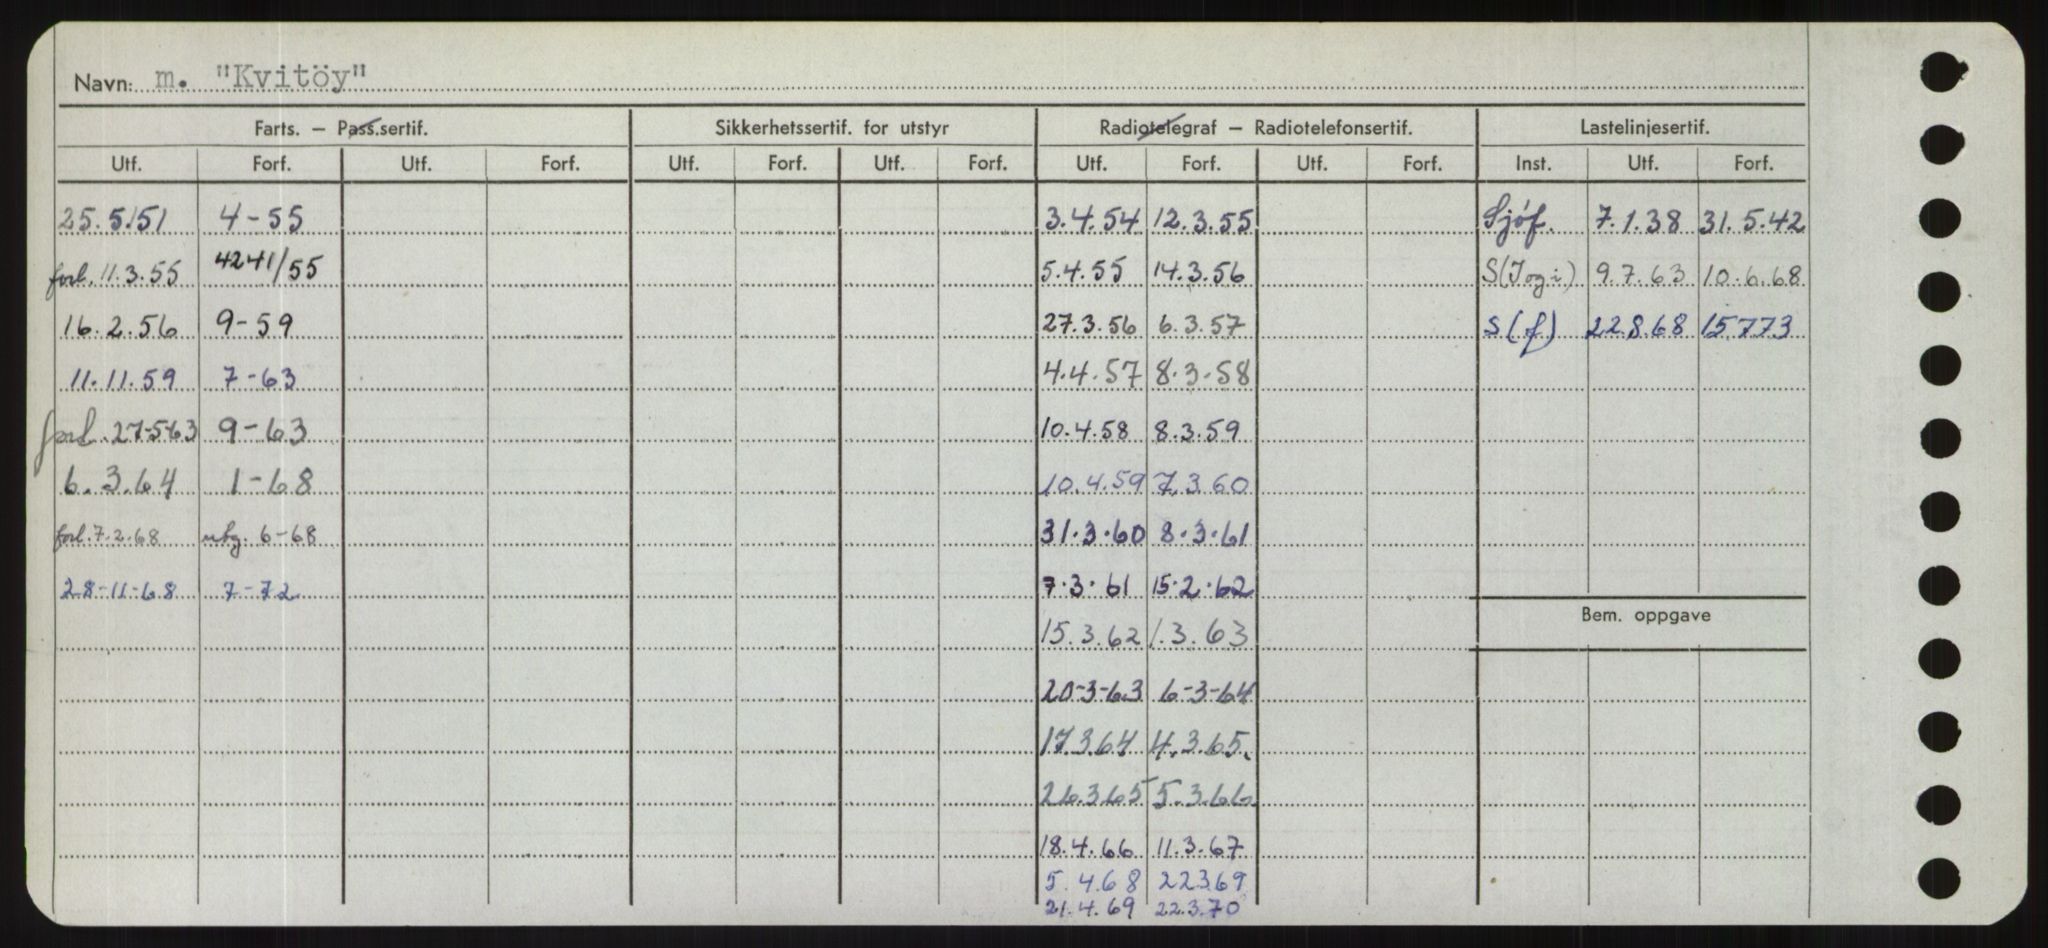 Navn: m. "Kvitöy"
Farts. – Pass.sertif. Sikkerhetssertif. for utstyr Radiotelegraf – Radiotelefonsertif. Lastelinjesertif.
Utf. Forf. Utf. Forf. Utf. Forf. Utf. Forf. Utf. Forf. Utf. Forf. Inst. Utf. Forf.
25.5.51 4-55 3.4.54 12.3.55 Sjöf. 7.1.38 31.5.42
forl. 11.3.55 4241/55 5.4.55 14.3.56 S(J og i) 9.7.63 10.6.68
16.2.56 9-59 27.3.56 6.3.57 S(f) 22.8.68 15773
11.11.59 7-63 4.4.57 8.3.58
forl. 27-5-63 9-63 10.4.58 8.3.59
6.3.64 1-68 10.4.59 7.3.60
forl. 7.2.68 6-68 31.3.60 8.3.61
28-11-68 7-72 7.3.61 15.2.62
Bem. oppgave
15.3.62 1.3.63
20-3-63 6-3-64
17364 4.3.65.
26.365 5.3.66
18.4.66 11.3.67
5.468 22369
21.4.69 22.3.70